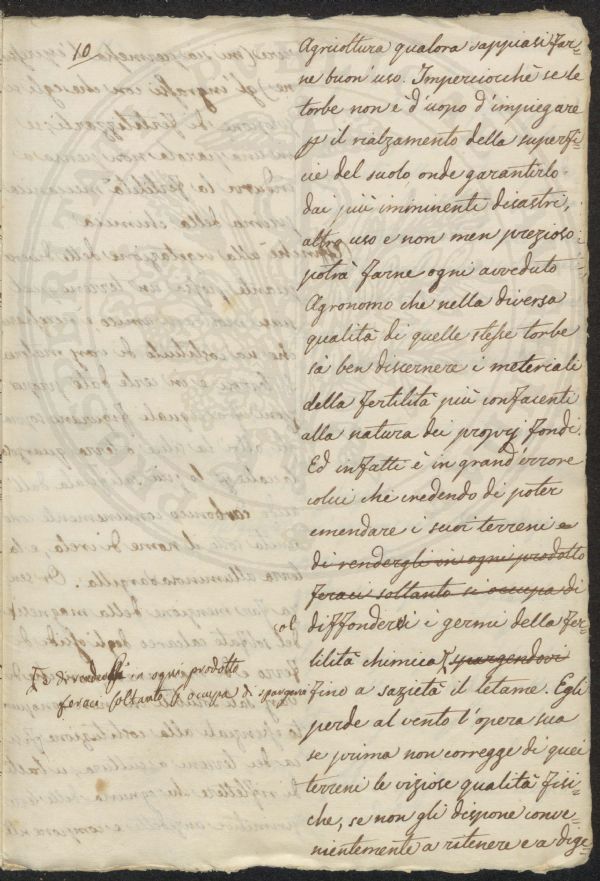 10
Agricoltura qualora sappiasi far=
ne buon' uso. Imperciocchè se le
torbe non è d'uopo d'impiegare
p il rialzamento della superfi=
cie del suolo onde garantirlo
dai più imminenti disastri,
altro uso e non men prezioso
potrà farne ogni avveduto
Agronomo che nella diversa
qualità di quelle stesse torbe
sà ben discernere i meteriali
della fertilità più confacenti
alla natura dei proprj fondi.
Ed infatti è in grand'errore
colui che credendo di poter
emendare i suoi terreni e
di rendergli in ogni prodotto
feraci soltanto si occupa di
diffondervi i germi della fer=
tilità chimica spargendovi
fino a sazietà il letame. Egli
perde al vento l'opera sua
se prima non corregge di quei
terreni le viziose qualità fisi=
che, se non gli dispone conve=
nientemente a ritenere e a dige=
al
e di renderli in ogni prodotto
feraci soltanto si occupa di spargervi